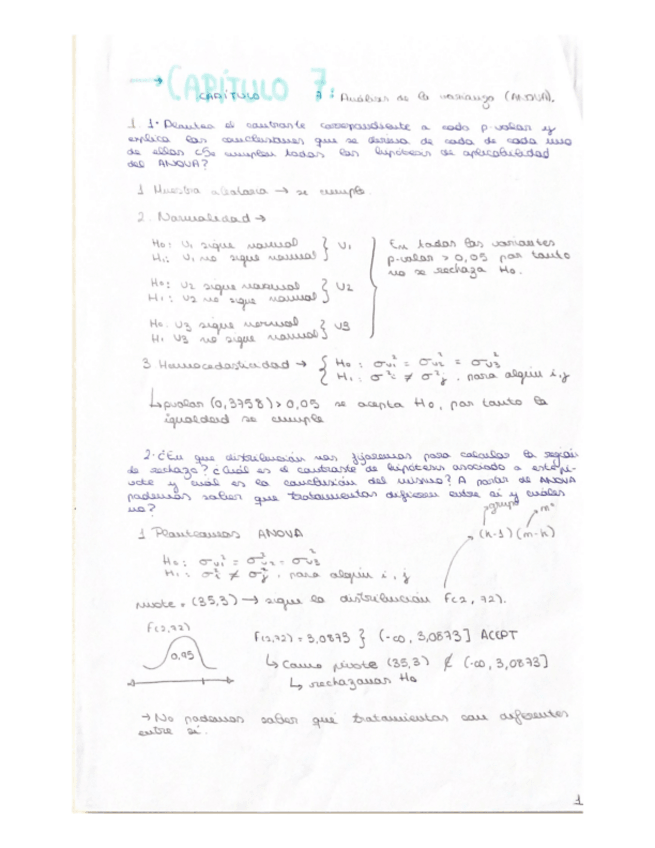 → CAPÍTULO 7:
CAPÍTULO 7: Análisis de la varianza (ANOVA).
1 1. Plantea el contraste correspondiente a cada p-valor y
explica las conclusiones que se deriva de cada de cada uno
de ellos ¿Se cumplen todas las hipótesis de aplicabilidad
del ANOVA?
1 Muestra aleatoria → se cumple.
2. Normalidad →
H0: V1 sigue normal } V1
H1: V1 no sigue normal
H0: V2 sigue normal } V2
H1: V2 no sigue normal
H0: V3 sigue normal } V3
H1 V3 no sigue normal
En todas las variantes
p-valor > 0,05 por tanto
no se rechaza H0.
3 Homocedasticidad → { H0: σ²v1 = σ²v2 = σ²v3
H1: σ²i ≠ σ²j, para algún i,j
↳ pvalor (0,3758) > 0,05 se acepta H0, por tanto la
igualdad se cumple
2. ¿En que distribución nos fijaremos para calcular la región
de rechazo? ¿Cuál es el contraste de hipótesis asociado a este pi-
vote y cuál es la conclusión del mismo? A partir de ANOVA
podemos saber que tratamientos difieren entre sí y cuáles
no?
grupo
(k-1) (n-k)
1 Planteamos ANOVA
H0: σ²v1 = σ²v2 = σ²v3
H1: σ²i ≠ σ²j, para algún i, j
pivote = (35,3) → sigue la distribución F(2, 72).
F(2,72)
0,95
F(2,72) = 3,0873 } (-∞, 3,0873] ACEPT
↳ Como pivote (35,3) ∉ (-∞, 3,0873]
↳ rechazamos H0
→ No podemos saber qué tratamientos son diferentes
entre sí.
1